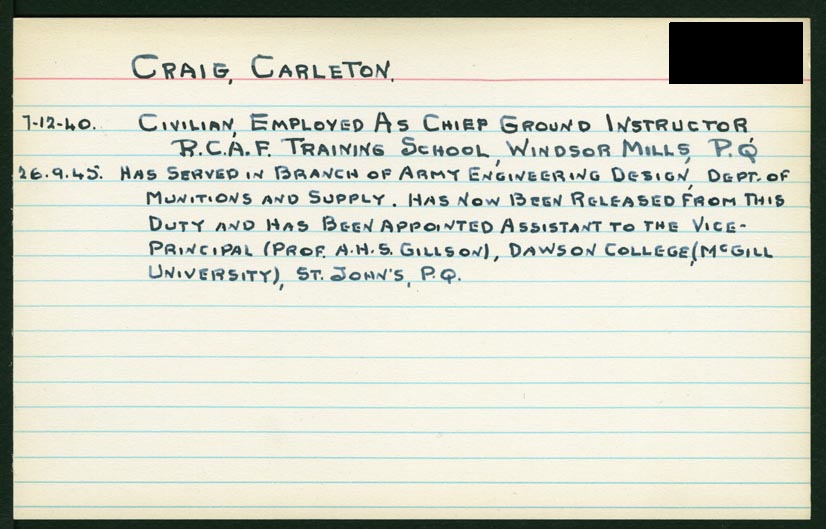 CRAIG, CARLETON.
7-12-40. CIVILIAN, EMPLOYED AS CHIEF GROUND INSTRUCTOR
R.C.A.F. TRAINING SCHOOL, WINDSOR MILLS, P.Q
26.9.45. HAS SERVED IN BRANCH OF ARMY ENGINEERING DESIGN, DEPT. OF
MUNITIONS AND SUPPLY. HAS NOW BEEN RELEASED FROM THIS
DUTY AND HAS BEEN APPOINTED ASSISTANT TO THE VICE-
PRINCIPAL (PROF. A.H.S. GILLSON), DAWSON COLLEGE, (MCGILL
UNIVERSITY), ST. JOHN'S, P.Q.